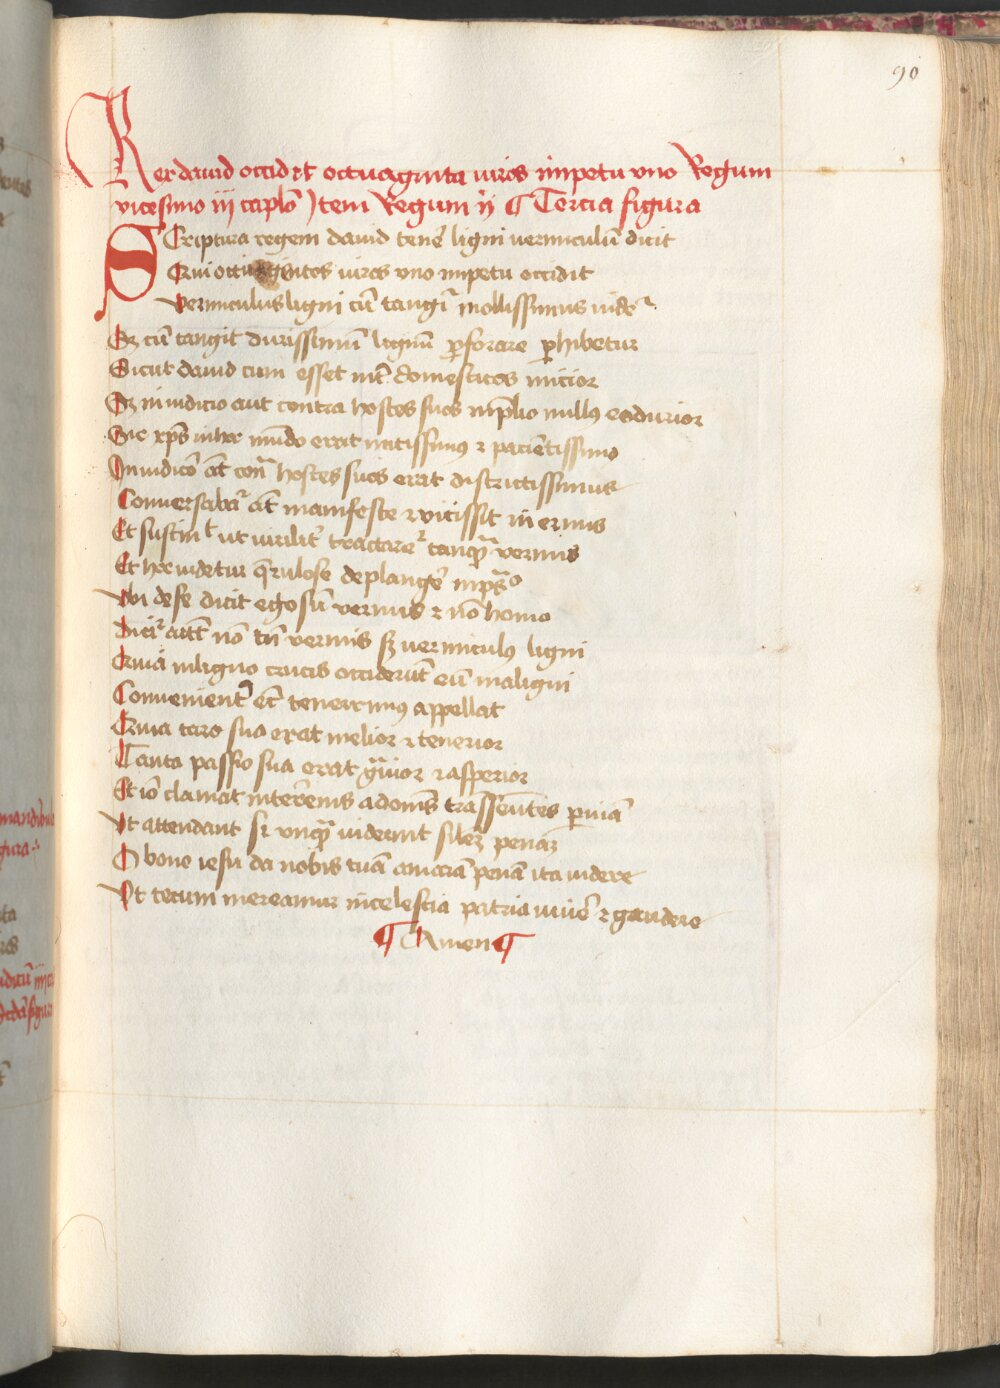 90
Rex dauid occidet octuaginta uiros impetu vno Regum
vicesimo iij caplō Item Regum ij ¶ Tercia figura
Scriptura regem dauid teneꝝ ligni vermiculū dicit
Qui octingentos uiros vno impetu occidit
Vermiculus ligni cū tangiꝛ mollissimus uideꝛ
Sꝫ cū tangit durissimū lignū ꝑforare ꝑhibetur
Sicut dauid cum esset int̄ domesticos mitior
Sꝫ in iudicio aut contra hostes suos in p̄lio nullꝰ eo durior
Sic xp̄s in hoc mūdo erat mitissimꝰ ⁊ pacientissimꝰ
In iudicō at̄ cont̄ hostes suos erat districtissimus
Conuersabaꝛ at̄ manifeste ⁊ vitissit inermis
Et sustinꝫ ut uirilit̄ tractareꝛ tanqꝫ vermis
Et hoc uidetur q̄rulose deplangeꝛ in ps̄o
Vbi de se dicit ego sū vermis ⁊ nō homo
Diciꝛ autē nō tm̄ vermis sꝫ uermiculꝰ ligni
Quia in ligno crucis occiderūt eū maligni
Conuenient̄ et̄ tenerrimꝰ appellat
Quia caro sua erat melior ⁊ tenerior
Tanto passio sua erat gᵃuior ⁊ asperior
Et iō clamat interēmis ad omēs trāsseūtes ꝑ uiā
Vt attendant si vnqᵃ uiderint silēꝫ penaꝫ
O bone iesu da nobis tuā amarā penā ita videre
Vt tecum mereamur in celestia patria uiueꝛ ⁊ gaudere
¶ Amen ¶